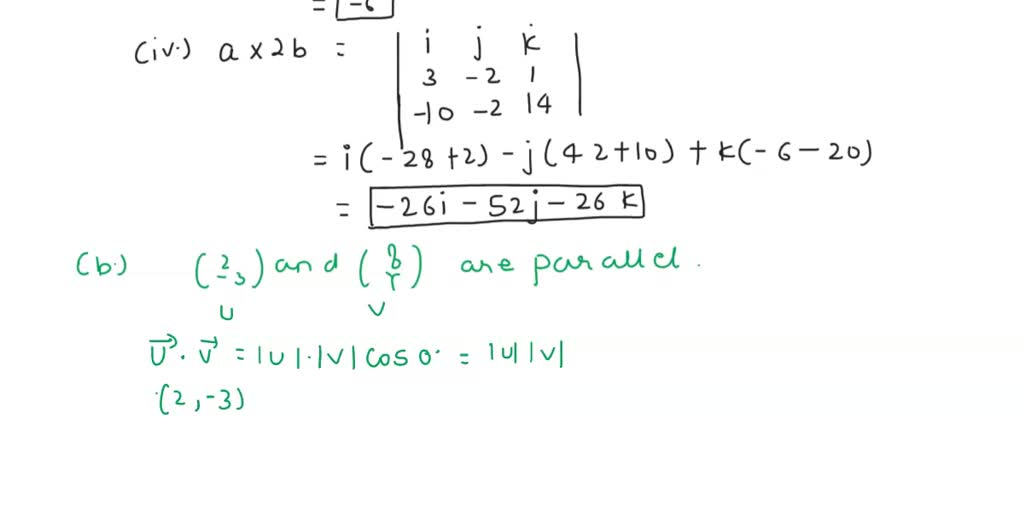 = -6
(iv.) a x 2b = | i j k |
3 -2 1
-10 -2 14
= i(-28+2) - j(42+10) + k(-6-20)
= -26i - 52j - 26 k
(b.) (2 -3) and ( ) are parallel.
U V
U⃗ . V⃗ = |U|.|V| cos 0° = |U| |V|
(2, -3)